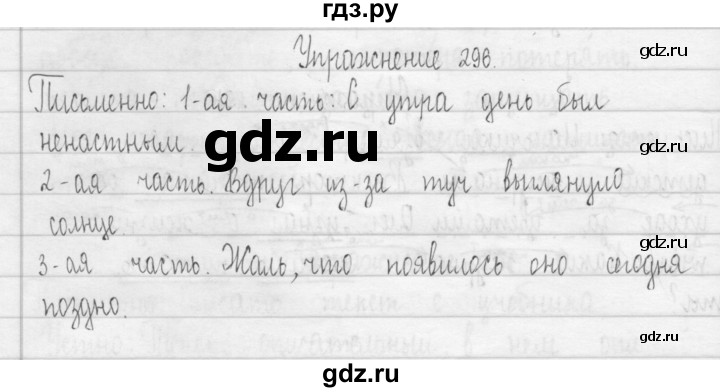 гдз.ру
gdz.ru
Упражнение 296.
gdz.ru
Письменно: 1-ая часть: С утра день был
ненастным. gdz.ru
gdz.ru
2-ая часть. Вдруг из-за туч выглянуло
солнце. gdz.ru
3-ая часть. Жаль, что появилось оно сегодня
поздно.
gdz.ru
gdz.ru